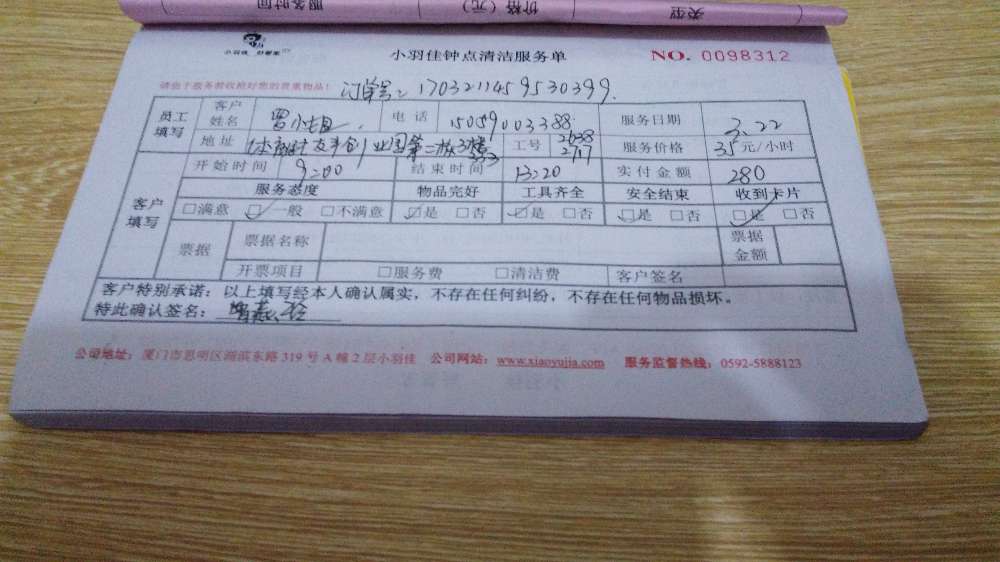 类型 价格（元） 服务时间
小羽佳 好管家
小羽佳钟点清洁服务单 NO. 0098312
请由于服务前收拾好您的贵重物品！ 订单号: 1703211459530399.
员工填写 客户姓名 曾小姐 电话 15059003388 服务日期 3.22
地址 创业园第二 3楼 333 工号 2638 2717 服务价格 35元/小时
客户填写 开始时间 9:00 结束时间 13:20 实付金额 280
服务态度 物品完好 工具齐全 安全结束 收到卡片
□满意 □一般 □不满意 □是 □否 □是 □否 □是 □否 □是 □否
票据 票据名称 票据金额
开票项目 □服务费 □清洁费 客户签名
客户特别承诺：以上填写经本人确认属实，不存在任何纠纷，不存在任何物品损坏。
特此确认签名：曾燕
公司地址：厦门市思明区湖滨东路319号A幢2层小羽佳 公司网站：www.xiaoyujia.com 服务监督热线：0592-5888123